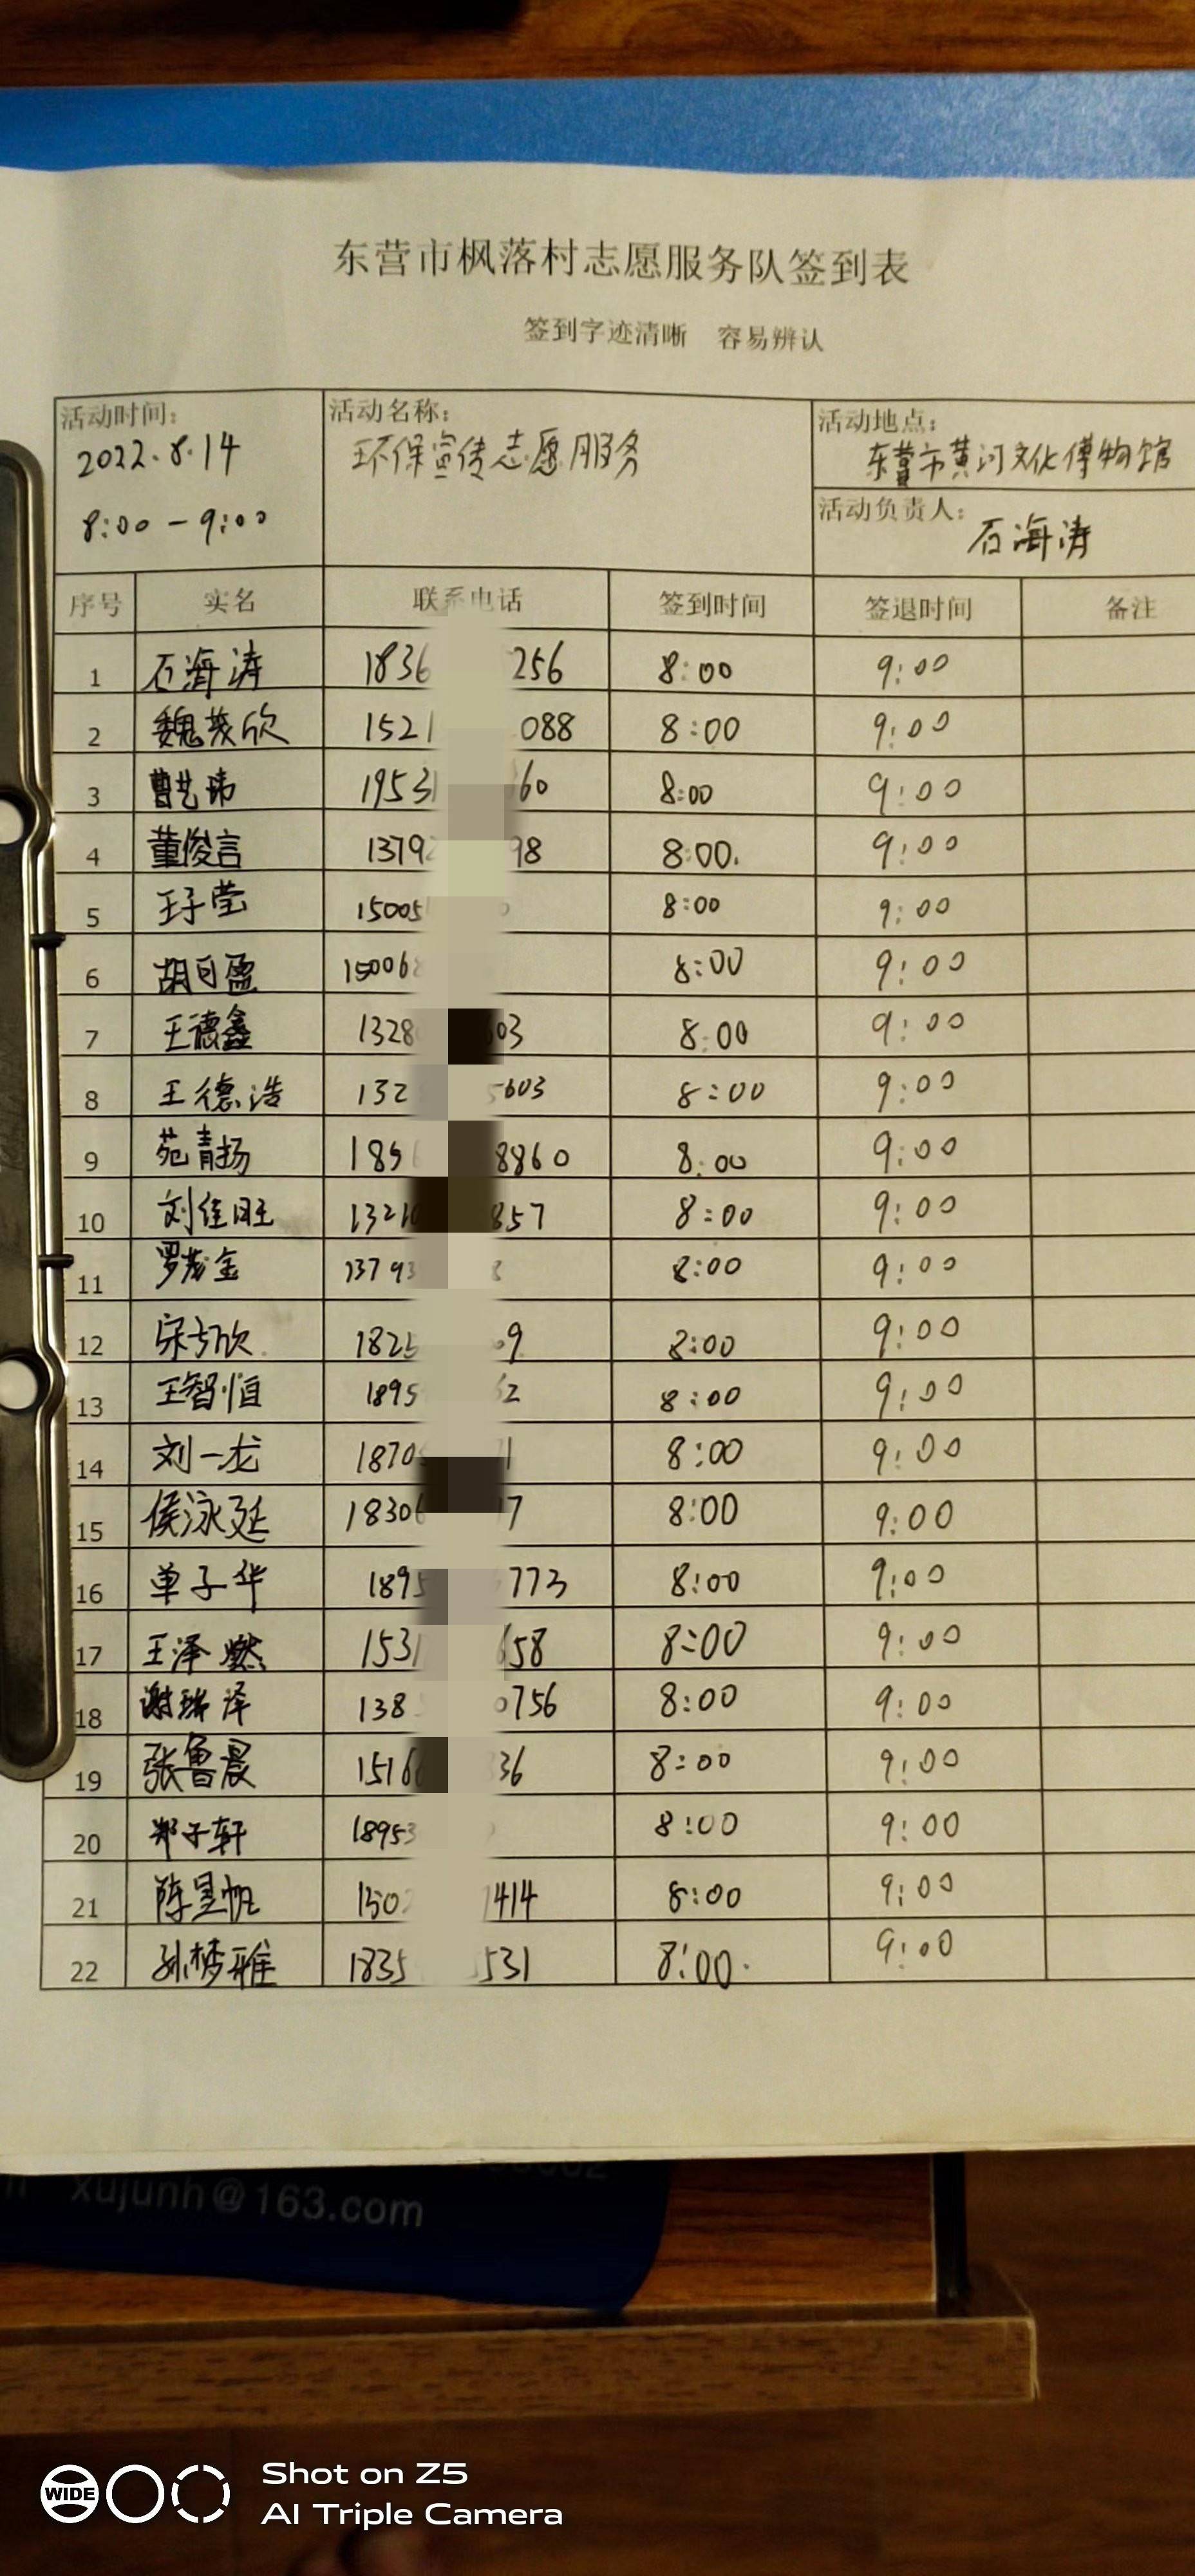 东营市枫落村志愿服务队签到表
签到字迹清晰 容易辨认
活动时间: 2022.8.14 8:00-9:00
活动名称: 环保宣传志愿服务
活动地点: 东营市黄河文化博物馆
活动负责人: 石海涛
序号 实名 联系电话 签到时间 签退时间 备注
1 石海涛 1836 256 8:00 9:00
2 魏茂欣 1521 088 8:00 9:00
3 曹艺玮 1953 60 8:00 9:00
4 董俊言 1379 98 8:00 9:00
5 王子莹 15005 8:00 9:00
6 胡自盈 15006 8:00 9:00
7 王德鑫 1328 603 8:00 9:00
8 王德浩 132 5603 8:00 9:00
9 苑青扬 189 8860 8:00 9:00
10 刘佳旺 1321 857 8:00 9:00
11 罗茂金 13793 8:00 9:00
12 宋方欣 1825 09 8:00 9:00
13 王智恒 1895 62 8:00 9:00
14 刘一龙 1870 1 8:00 9:00
15 侯泳廷 1830 7 8:00 9:00
16 单子华 1895 773 8:00 9:00
17 王泽燃 1531 658 8:00 9:00
18 谢瑞泽 138 0756 8:00 9:00
19 张鲁晨 1516 36 8:00 9:00
20 郑子轩 18953 8:00 9:00
21 陈昱帆 150 1414 8:00 9:00
22 孙梦雅 1835 531 8:00 9:00
xujunh@163.com
WIDE
Shot on Z5
AI Triple Camera